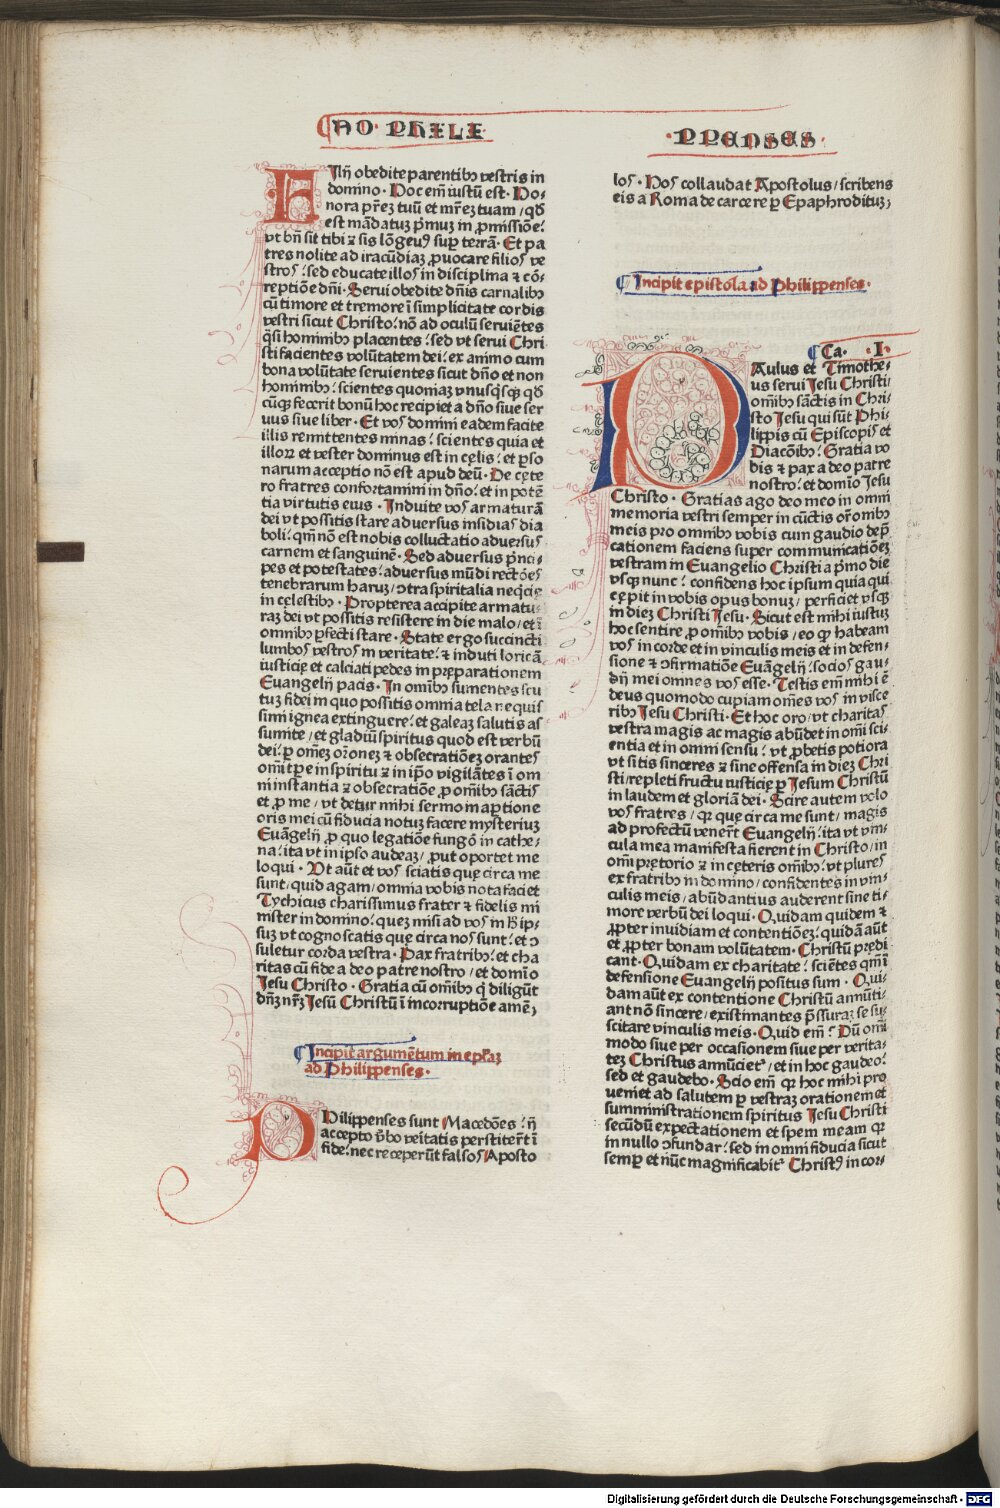 AD PHILI
PPENSES
FIlij obedite parentibꝰ vestris in
domino. Hoc em̄ iustū est. Ho-
nora pr̄ez tuū et mr̄ez tuam/qđ
est mādatuꝫ p̄muꝫ in ꝓmissiōe.
vt bn̄ sit tibi ⁊ sis lōgeuꝰ suꝑ terrā. Et pa
tres nolite ad iracūdiaꝫ ꝓuocare filios ve
stros: sed educate illos in disciplina ⁊ cō-
reptiōe dn̄i. Serui obedite dn̄is carnalibꝰ
cū timore et tremore ī simplicitate cordis
vestri sicut Christo: nō ad oculū seruiētes
q̄si hominibꝰ placentes: sed vt serui Chri
sti facientes volūtatem dei: ex animo cum
bona volūtate seruientes sicut dn̄o et non
hominibꝰ: scientes quoniaꝫ vnusq̄sqꝫ qđ
cūqꝫ fecerit bonū hoc recipiet a dn̄o siue ser
uus siue liber. Et vos domini eadem facite
illis remittentes minas: scientes quia et
illoꝝ et vester dominus est in cęlis: et ꝑso
narum acceptio nō est apud deū. De cęte
ro fratres confortamini in dn̄o: et in potē
tia virtutis eius. Induite vos armaturā
dei vt possitis stare aduersus insidias dia
boli: qm̄ nō est nobis colluctatio aduersus
carnem et sanguinē. Sed aduersus p̄nci-
pes et potestates: aduersus mūdi rectōes
tenebrarum haruꝫ/ɔtra spiritalia neq̄cię
in cęlestibꝰ. Propterea accipite armatu-
raꝫ dei vt possitis resistere in die malo/et ī
omnibꝰ ꝑfecti stare. State ergo succincti
lumbos vestros in veritate: ⁊ induti loricā
iusticię et calciati pedes in pręparationem
Euangelij pacis. In omībꝰ sumentes scu
tuꝫ fidei in quo possitis omnia tela nequis
simi ignea extinguere: et galeaꝫ salutis as
sumite/et gladiū spiritus quod est verbū
dei: ꝑ omēꝫ or̄oneꝫ ⁊ obsecratiōeꝫ orantes
omī tꝑe in spiritu ⁊ in ip̄o vigilātes ī om
ni instantia ⁊ obsecratiōe ꝓ omībꝰ sāctis
et ꝓ me/vt detur mihi sermo in aꝑtione
oris mei cū fiducia notuꝫ facere mysteriuꝫ
Euāgelij ꝓ quo legatiōe fungor in cathe-
na: ita vt in ipso audeaꝫ/ꝓut oportet me
loqui. Vt aūt et vos sciatis quę circa me
sunt/quid agam/omnia vobis nota faciet
Tychicus charissimus frater ⁊ fidelis mi
nister in domino: quez misi ad vos in h̄ ip-
suꝫ vt cognoscatis quę circa nos sunt: et ɔ
suletur corda vestra. Pax fratribꝰ: et cha
ritas cū fide a deo patre nostro/et domīo
Jesu Christo. Gratia cū omībꝰ q̄ diligūt
dn̄ꝫ nr̄ꝫ Jesū Christū ī incorruptiōe amē;
Incipit argumētum in epl̄aꝫ
ad Philippenses.
PHilippenses sunt Macedōes: ij
accepto v̄bo veītatis perstiter̄t ī
fide: nec receperūt falsos Aposto
los. Hos collaudat Apostolus/scribens
eis a Roma de carcere ꝑ Epaphroditūꝫ;
Incipit epistola ad Philippenses.
Ca. I.
PAulus et Timothe-
us serui Jesu Christi/
omībꝰ sāctis in Chri-
sto Jesu qui sūt Phi-
lippis cū Episcopis et
Diacōibꝰ: Gratia vo
bis ⁊ pax a deo patre
nostro: et domīo Jesu
Christo. Gratias ago deo meo in omni
memoria vestri semper in cūctis or̄onibꝰ
meis pro omnibꝰ vobis cum gaudio dep̄
cationem faciens super communicatiōeꝫ
vestram in Euangelio Christi a p̄mo die
vsqꝫ nunc: confidens hoc ipsum quia qui
cępit in vobis opus bonuꝫ/perficiet vsqꝫ
in dieꝫ Christi Jesu. Sicut est mihi iustuꝫ
hoc sentire ꝓ omībꝰ vobis/eo ꝙ habeam
vos in corde et in vinculis meis et in defen-
sione ⁊ ɔfirmatiōe Euāgelij: socios gau-
dij mei omnes vos esse. Testis em̄ mihi ē
deus quomodo cupiam omēs vos in visce
ribꝰ Jesu Christi. Et hoc oro/vt charitas
vestra magis ac magis abūdet in omī sci-
entia et in omni sensu: vt ꝓbetis potiora
vt sitis sinceres ⁊ sine offensa in dieꝫ Chri
sti/repleti fructu iusticię ꝑ Jesum Christū
in laudem et gloriā dei. Scire autem volo
vos fratres/qꝛ quę circa me sunt/magis
ad profectū vener̄t Euangelij: ita vt vin-
cula mea manifesta fierent in Christo/in
omī pretorio ⁊ in cęteris omībꝰ: vt plures
ex fratribꝰ in domino/confidentes in vin-
culis meis/abūdantius auderent sine ti-
more verbū dei loqui. Quidam quidem ⁊
ꝓpter inuidiam et contentiōeꝫ: quidā aūt
et ꝓpter bonam volūtatem. Christū prędi
cant. Quidam ex charitate: sciētes qm̄ ī
defensione Euangelij positus sum. Qui-
dam aūt ex contentione Christū annūti-
ant nō sincere/existimantes p̄ssuraꝫ se su-
scitare vinculis meis. Quid em̄? Dū omī
modo siue per occasionem siue per verita-
teꝫ Christus annūciet᷑/et in hoc gaudeo:
sed et gaudebo. Scio em̄ qꝛ hoc mihi pro
ueniet ad salutem ꝑ vestraꝫ orationem et
sumministrationem spiritus Jesu Christi
secūdū expectationem et spem meam qꝛ
in nullo ɔfundar: sed in omni fiducia sicut
semꝑ et nūc magnificabit᷑ Christꝰ in cor-
Digitalisierung gefördert durch die Deutsche Forschungsgemeinschaft - DFG